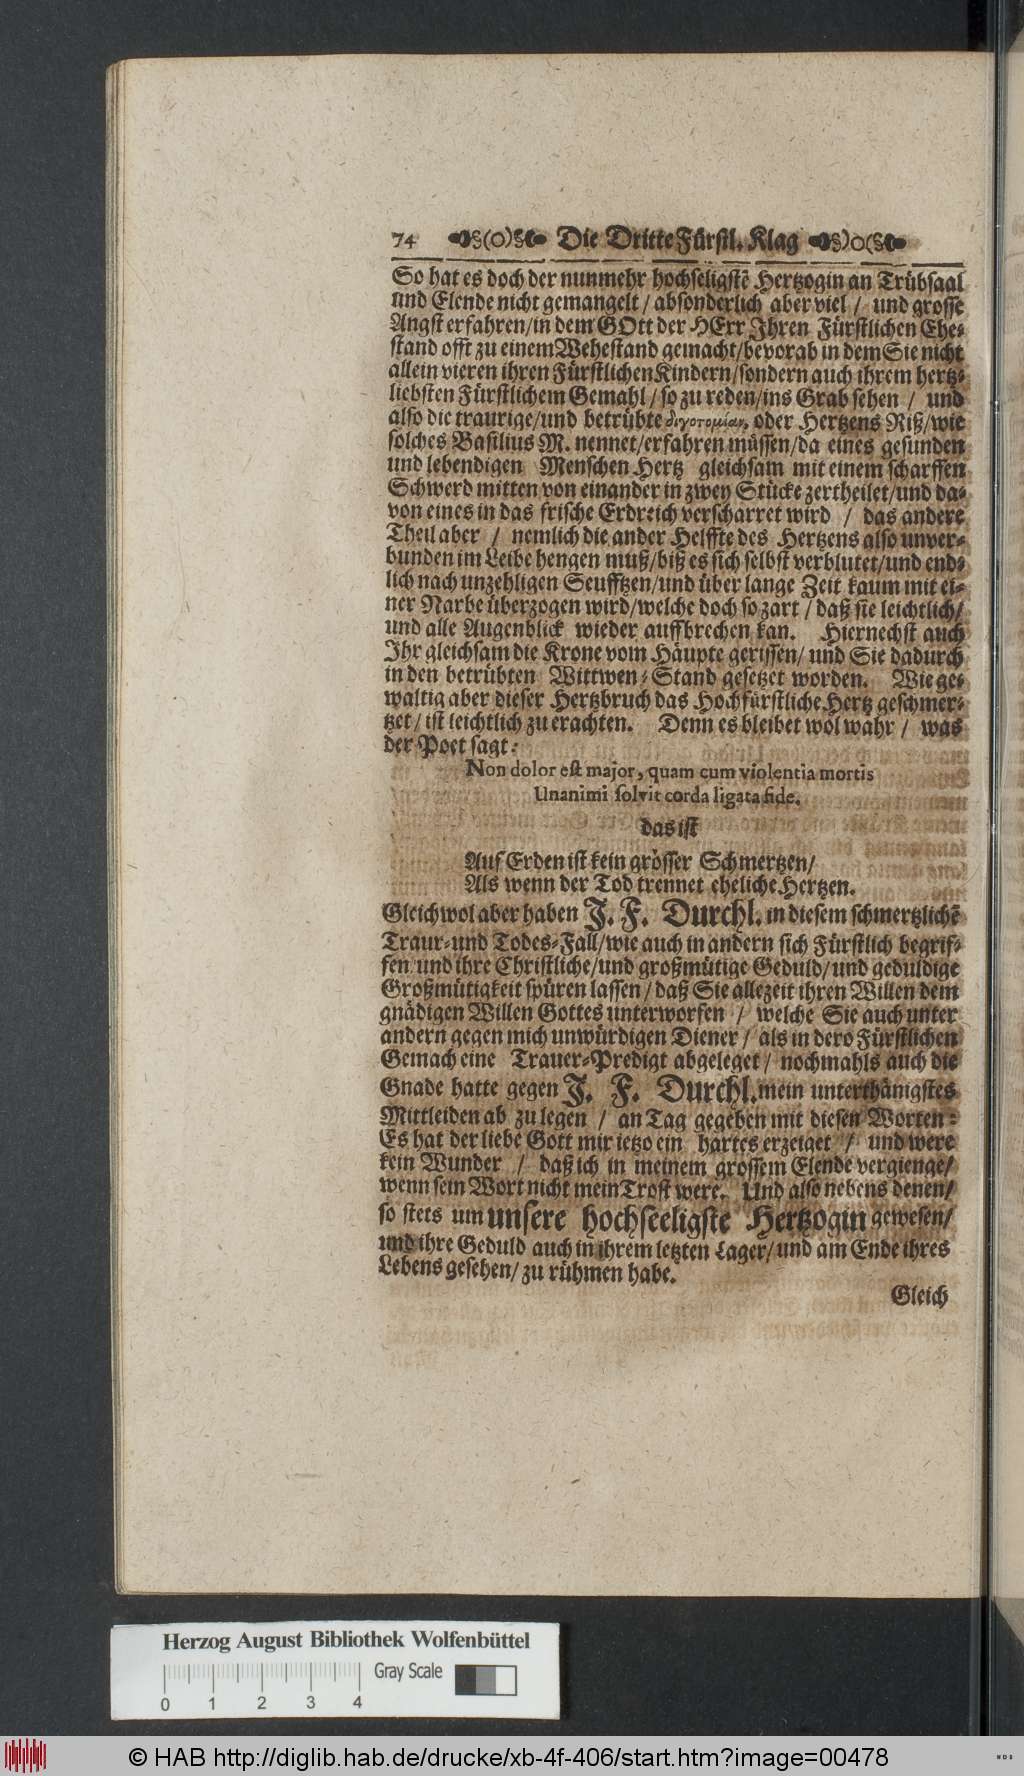 74 §(O)§ Die Dritte Fürstl. Klag §)O(§
So hat es doch der nunmehr hochseligstẽ Hertzogin an Trübsaal
und Elende nicht gemangelt / absonderlich aber viel / und grosse
Angst erfahren/in dem GOtt der HErr Jhren Fürstlichen Ehe-
stand offt zu einem Wehestand gemacht/bevorab in dem Sie nicht
allein vieren ihren Fürstlichen Kindern/sondern auch ihrem hertz-
liebsten Fürstlichem Gemahl / so zu reden/ins Grab sehen / und
also die traurige/und betrübte διχοτομίαν, oder Hertzens Riß/wie
solches Basilius M. nennet/erfahren müssen/da eines gesunden
und lebendigen Menschen Hertz gleichsam mit einem scharffen
Schwerd mitten von einander in zwey Stücke zertheilet/und da-
von eines in das frische Erdreich verscharret wird / das andere
Theil aber / nemlich die ander Helffte des Hertzens also unver-
bunden im Leibe hengen muß/biß es sich selbst verblutet/und end-
lich nach unzehligen Seufftzen/und über lange Zeit kaum mit ei-
ner Narbe überzogen wird/welche doch so zart / daß sie leichtlich/
und alle Augenblick wieder auffbrechen kan. Hiernechst auch
Jhr gleichsam die Krone vom Häupte gerissen/ und Sie dadurch
in den betrübten Wittwen-Stand gesetzet worden. Wie ge-
waltig aber dieser Hertzbruch das Hochfürstliche Hertz geschmer-
tzet/ ist leichtlich zu erachten. Denn es bleibet wol wahr / was
der Poet sagt:
Non dolor est major, quam cum violentia mortis
Unanimi solvit corda ligata fide.
das ist
Auf Erden ist kein grösser Schmertzen/
Als wenn der Tod trennet eheliche Hertzen.
Gleichwol aber haben J. F. Durchl. in diesem schmertzlichẽ
Traur-und Todes-Fall/wie auch in andern sich Fürstlich begrif-
fen und ihre Christliche/und großmütige Geduld/und geduldige
Großmütigkeit spüren lassen/ daß Sie allezeit ihren Willen dem
gnädigen Willen Gottes unterworfen / welche Sie auch unter
andern gegen mich unwürdigen Diener / als in dero Fürstlichen
Gemach eine Trauer-Predigt abgeleget/ nochmahls auch die
Gnade hatte gegen J. F. Durchl. mein unterthänigstes
Mittleiden ab zu legen / an Tag gegeben mit diesen Worten:
Es hat der liebe Gott mir ietzo ein hartes erzeiget / und were
kein Wunder / daß ich in meinem grossem Elende vergienge/
wenn sein Wort nicht mein Trost were. Und also nebens denen/
so stets um unsere hochseeligste Hertzogin gewesen/
und ihre Geduld auch in ihrem letzten Lager/ und am Ende ihres
Lebens gesehen/ zu rühmen habe.
Gleich
Herzog August Bibliothek Wolfenbüttel
Gray Scale
0 1 2 3 4
© HAB http://diglib.hab.de/drucke/xb-4f-406/start.htm?image=00478